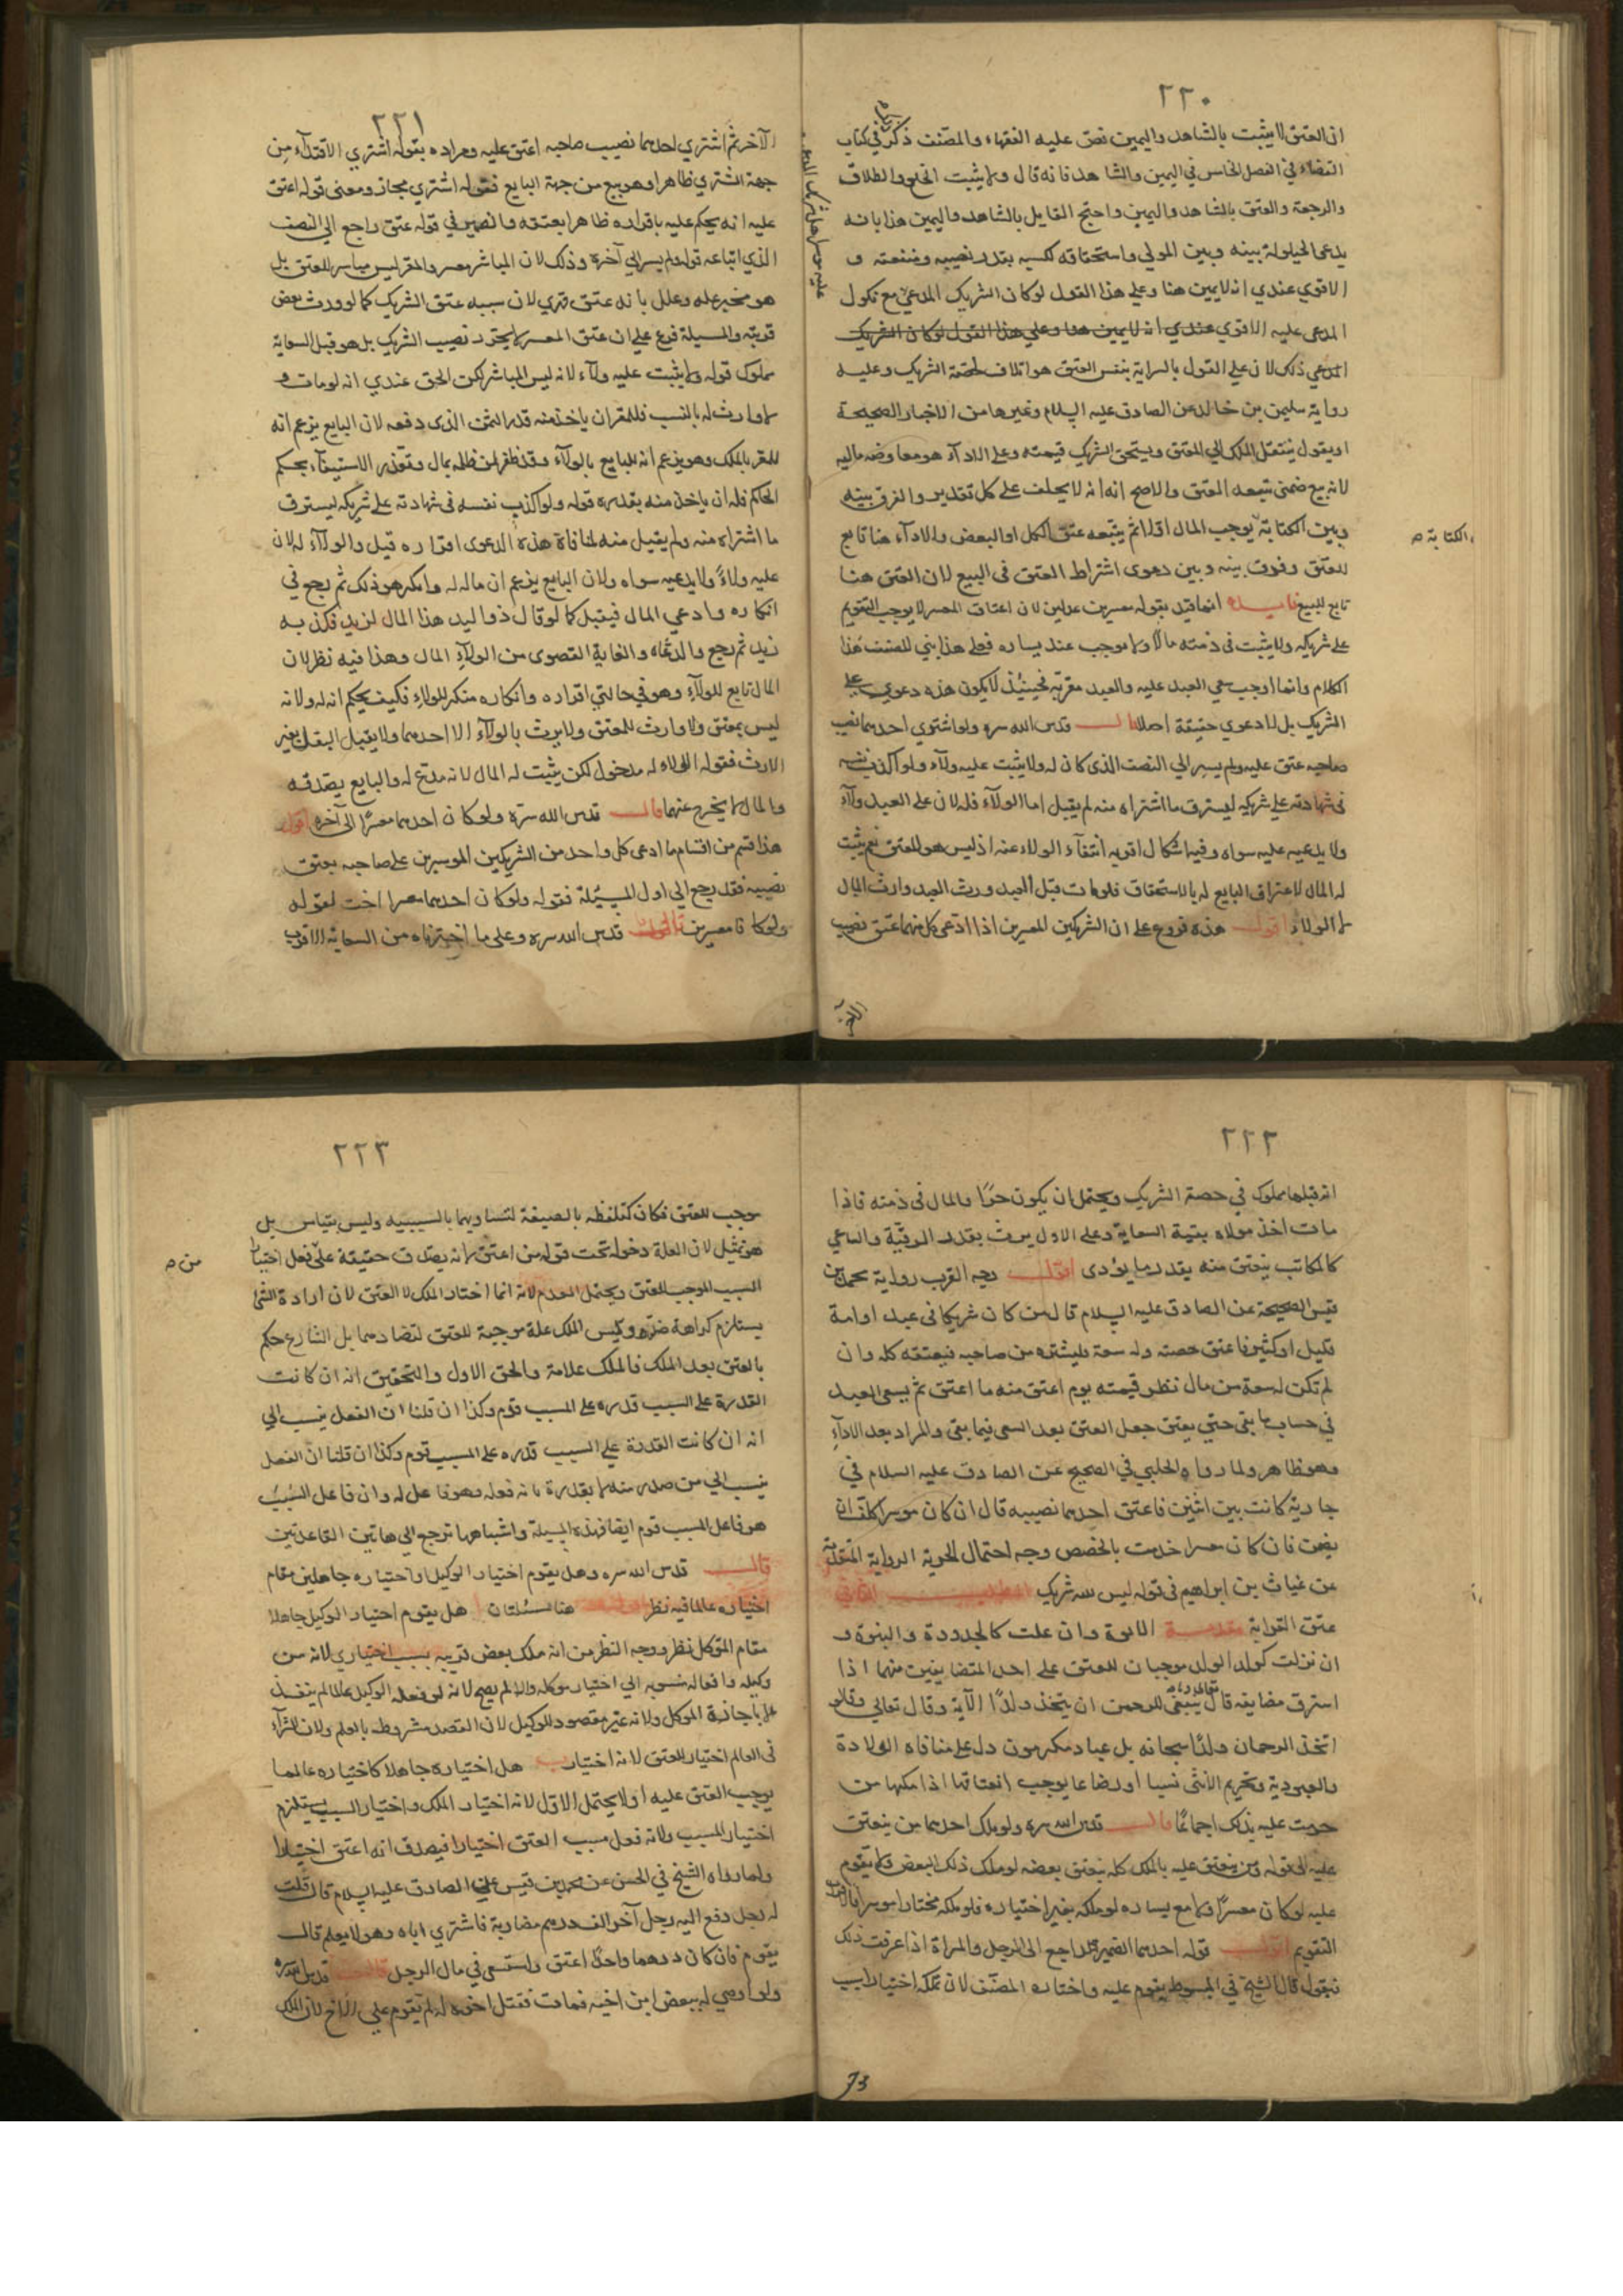 ٢٢٠
ان العتق لا يثبت بالشاهد واليمين نص عليه الفقهاء والمصنف ذكر في كتاب
القضاء في الفصل الخامس في اليمين والشاهد فانه قال ولا يثبت الخلع والطلاق
والرجعة والعتق بالشاهد واليمين واحتج القايل بالشاهد واليمين هذا بانه
يدعى الحيلولة بينه وبين المولي واستحقاقه لكسبه بقدر نصيبه ومنفعته و
الاقوي عندي انه لايمين هنا وعلي هذا القول لو كان الشريك المدعي مع نكول
المدعى عليه الاقوي عندي انه لايمين هنا وعلي هذا القول لو كان الشريك
المدعي ذلك لان علي القول بالسراية بنفس العتق هو اتلاف لحصة الشريك وعليه
رواية سليمن بن خالد عن الصادق عليه السلام وغيرها من الاخبار الصحيحة
او يقول ينتقل الملك الي المعتق ويستحق الشريك قيمته وعلي الاداء هو معاوضه ماليه
لانه بيع ضمني تتبعه العتق والاصح انه انه لا يحلف علي كل تقدير والفرق بينه
وبين الكتابة يوجب المال اولا ثم يتبعه عتق الكل او البعض والاداء هنا تابع
الكتابة ص
للعتق وفرق بينه وبين دعوى اشتراط العتق في البيع لان العتق هنا
تابع للبيع انما قيد بقوله معسرين عدلين لان اعتاق المعسر لا يوجب التقويم
علي شريكه ولا يثبت في ذمته مالا ولا موجب عند يساره فعلي هذا بني المصنف هذا
الكلام وانما اوجب سعي العبد عليه والعبد مقر به فحينئذ لا يكون هذه دعوي علي
الشريك بل لا دعوي حقيقة اصلا قال قدس الله سره ولو اشتري احدهما نصيب
صاحبه عتق عليه ولم يسر الي النصف الذي كان له ولا يثبت عليه ولاء ولو اكذب نفسه
في شهادته علي شريكه ليسترق ما اشتراه منه لم يقبل اما الولاء فله لان علي العبد ولاء
ولا يدعيه عليه سواه وفيه اشكال اقربه انتفاء الولاء عنه اذ ليس هو المعتق نعم يثبت
له المال لاعتراف البايع له بالاستحقاق فلو مات قبل العبد ورث العبد وارث المال
لا الولاء اقول هذه فروع علي ان الشريكين المعسرين اذا ادعي كل منهما عتق نصيب
الاخر
٢٢١
الآخر ثم اشتري احدهما نصيب صاحبه اعتق عليه ومراده بقوله اشتري الافتداء من
جهة المشتري ظاهرا وهو بيع من جهة البايع فقوله اشتري مجاز ومعنى قوله اعتق
عليه انه يحكم عليه باقراره ظاهرا بعتقه والضمير في قوله عتق راجع الي النصف
الذي ابتاعه قوله ولم يسر الي آخره وذلك لان المباشر معسر والمقر ليس مباشر للعتق بل
هو مخبر عنه وعلل بانه عتق قهري لان سببه عتق الشريك كما لو ورث بعض
قريبه والمسيلة فرع علي ان عتق المعسر لا يحرر نصيب الشريك بل هو قبل السعاية
مملوك قوله ولا يثبت عليه ولاء لانه ليس المباشر لكن الحق عندي انه لو مات و
لا وارث له بالنسب فللمقر ان ياخذ منه قدر الثمن الذي دفعه لان البايع يزعم انه
للمقر بالملك وهو يزعم انه للبايع بالولاء وقد ظفر لمن ظلمه بمال وتعذر الاستيفاء بحكم
الحاكم فله ان ياخذ منه بقدره قوله ولو اكذب نفسه في شهادته علي شريكه ليسترق
ما اشتراه منه ولم يقبل منه لمنافاة هذه الدعوى اقراره قبل والولاء له لان
عليه ولاء ولا يدعيه سواه ولان البايع يزعم ان ماله له وانكر هو ذلك ثم رجع في
انكاره وادعي المال فيقبل كما لو قال ذو اليد هذا المال لزيد فكذبه
زيد ثم رجع وادعاه والغاية القصوى من الولاء المال وهذا فيه نظر لان
المال تابع للولاء وهو في حالتي اقراره وانكاره منكر للولاء فكيف يحكم انه له ولانه
ليس بمعتق ولا وارث للمعتق ولا يرث بالولاء الا احدهما ولا يقبل النقل بغير
الارث فقوله الولاء له مدخول لكن يثبت له المال لانه مدع له والبايع يصدقه
والمال لا يخرج عنهما قال قدس الله سره ولو كان احدهما معسرا الى آخره اقول
هذا قسم من اقسام ما ادعى كل واحد من الشريكين الموسرين علي صاحبه بعتق
نصيبه فقد رجع الي اول المسيلة فقوله ولو كان احدهما معسرا اخت لقوله
ولو كانا معسرين قال قدس الله سره وعلى ما اخترناه من السعاية الاقرب
٢٢٢
انه قبلها مملوك في حصة الشريك ويحتمل ان يكون حرا والمال في ذمته فاذا
مات اخذ مولاه بقية السعاية وعلى الاول يرث بقدر الرقية والساعي
كالمكاتب ينعتق منه بقدر ما يؤدى اقول وجه القرب رواية محمد بن
قيس الصحيحة عن الصادق عليه السلام قال من كان شريكا في عبد او امة
قليل او كثير فاعتق حصته وله سعة فليشتره من صاحبه فيعتقه كله وان
لم تكن له سعة من مال نظر قيمته يوم اعتق منه ما اعتق ثم يسعى العبد
في حساب ما بقى حتى يعتق جعل العتق بعد السعى فيما بقى والمراد بعد الاداء
وهو ظاهر ولما رواه الحلبي في الصحيح عن الصادق عليه السلام في
جارية كانت بين اثنين فاعتق احدهما نصيبه قال ان كان موسرا كلف ان
يضمن فان كان معسرا خدمت بالحصص وجه احتمال الحرية الرواية المتقدمة
عن غياث بن ابراهيم في قوله ليس لله شريك المطلب الثاني
عتق القرابة مقدمة الابوة وان علت كالجدودة والبنوة و
ان نزلت كولد الولد موجبان للعتق علي احد المتضايفين منهما اذا
استرق مضايفه قال تعالى وما ينبغي للرحمن ان يتخذ ولدا الآية وقال تعالي وقالوا
اتخذ الرحمان ولدا سبحانه بل عباد مكرمون دل علي منافاة الولادة
والعبودية وتحريم الانثى نسبا او رضاعا يوجب انعتاقها اذا ملكها من
حرمت عليه بذلك اجماعا قال قدس الله سره ولو ملك احدهما من ينعتق
عليه الى قوله ومن ينعتق عليه بالملك كله ينعتق بعضه لو ملك ذلك البعض ولا يقوم
عليه لو كان معسرا ولا مع يساره لو ملكه بغير اختياره فلو ملكه مختارا موسرا فالاقرب
التقويم اقول قوله احدهما الضمير راجع الى الرجل والمراة اذا عرفت ذلك
فنقول قال الشيخ في المبسوط يقوم عليه واختاره المصنف لان تملكه اختيارا سبب
73
٢٢٣
موجب للعتق فكان كتلفظه بالصيغة لتساويهما بالسببيه وليس بقياس بل
هو تمثيل لان العلة دخوله تحت قوله من اعتق لانه يصدق حقيقة علي فعل اختيارا
من ص
السبب الموجب للعتق ويحتمل العدم لانه انما اختار الملك لا العتق لان ارادة الشئ
يستلزم كراهة ضده وليس الملك علة موجبة للعتق لتضادهما بل الشارع حكم
بالعتق بعد الملك فالملك علامة والحق الاول والتحقيق انه ان كانت
القدرة على السبب قدره على المسبب قوم وكذا ان قلنا ان الفعل ينسب الي
انه ان كانت القدرة علي السبب قدره على المسبب قوم وكذا ان قلنا ان الفعل
ينسب الي من صدر منه لا بقدرة بانه فعله وهو فاعل له وان فاعل السبب
هو فاعل المسبب قوم ايضا فهذه المسيلة واشباهها ترجع الي هاتين القاعدتين
قال قدس الله سره وهل يقوم اختيار الوكيل واختياره جاهلين مقام
اختياره عالما فيه نظر اقول هنا مسئلتان ا هل يقوم اختيار الوكيل جاهلا
مقام الموكل نظر ووجه النظر من انه ملك بعض قريبه بسبب اختياري لانه من
وكيله وافعاله منسوبه الي اختيار موكله والا لم يصح لانه لو فعله الوكيل عالما لم ينفذ
الا باجازة الموكل ولانه غير مقصود للوكيل لان القصد مشروط بالعلم ولان الشراء
في العالم اختيار للعتق لانه اختيار ب هل اختياره جاهلا كاختياره عالما
يوجب العتق عليه او لا يحتمل الاول لانه اختيار الملك واختيار السبب يستلزم
اختيار المسبب ولانه فعل سبب العتق اختيارا فيصدق انه اعتق اختيارا
ولما رواه الشيخ في الحسن عن محمد بن قيس علي الصادق عليه السلام قال قلت
له رجل دفع اليه رجل آخر الف درهم مضاربة فاشتري اباه وهو لا يعلم قال
يقوم فان كان درهما واحدا اعتق واستسعى في مال الرجل قال قدس سره
ولو اوصي له ببعض ابن اخيه فمات فقبل اخوه له لم يقوم علي الاخ لان الملك